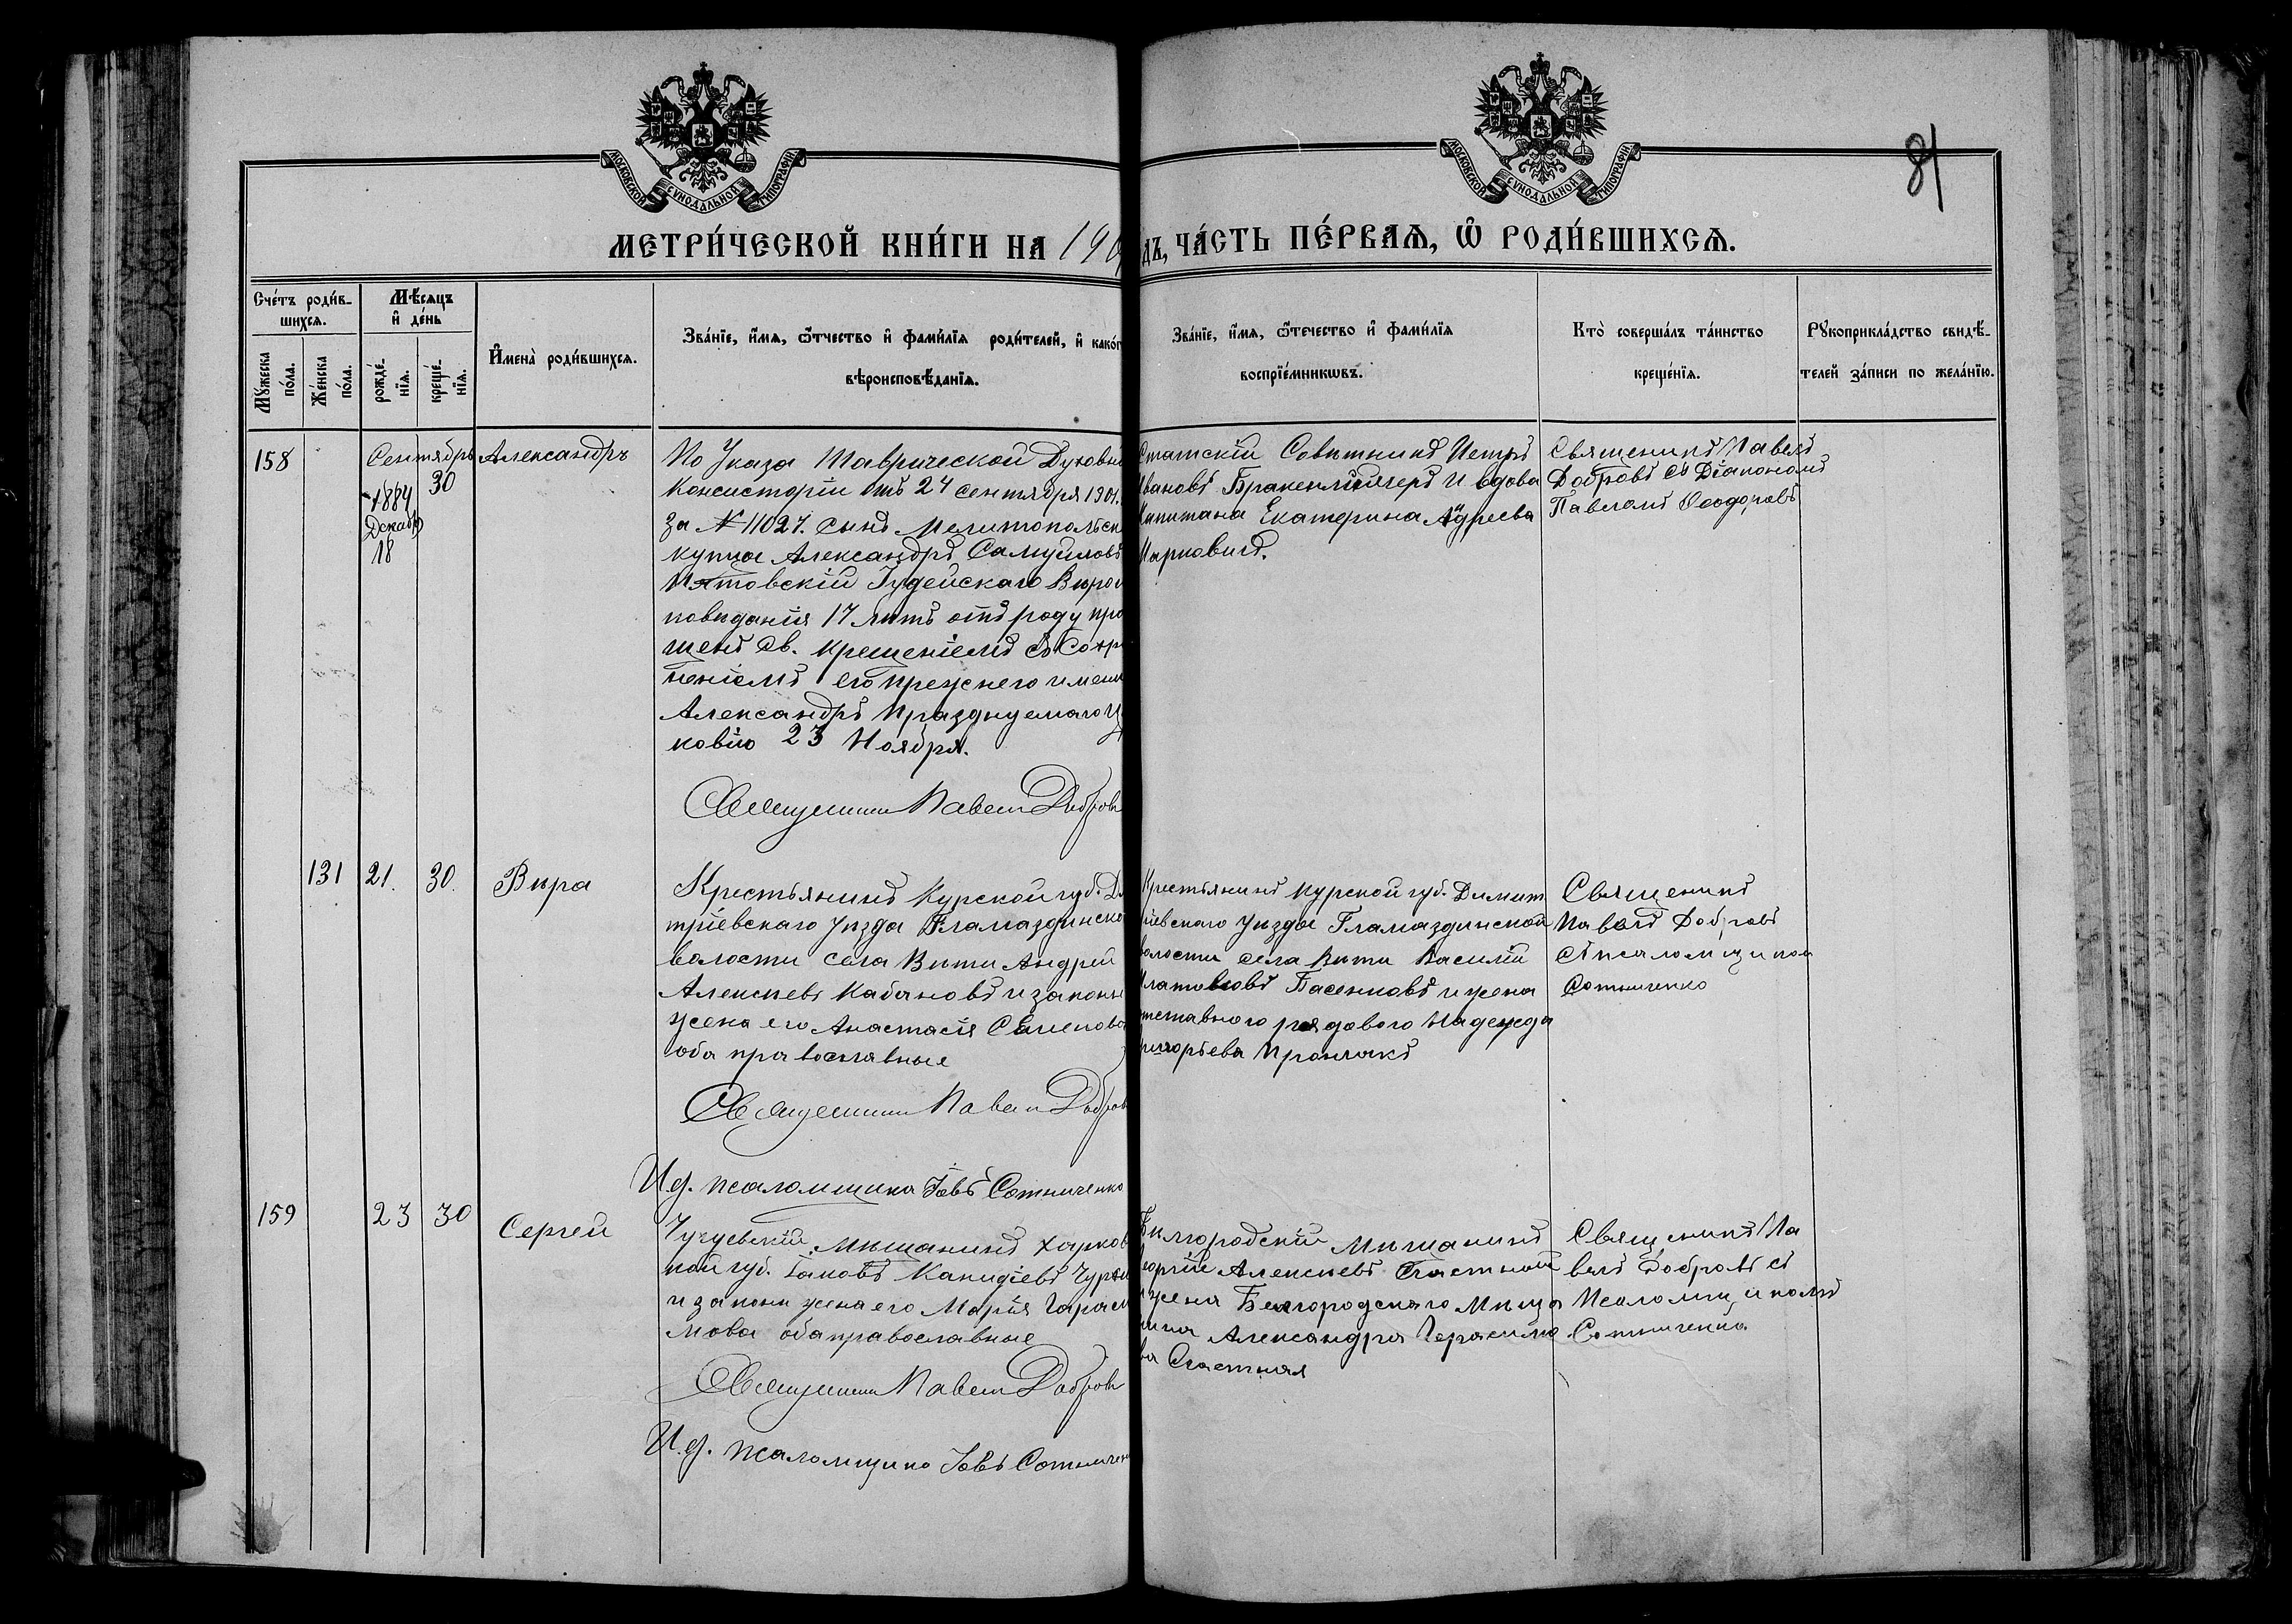 МОСКОВСКОЙ СѴНОДАЛЬНОЙ ТИПОГРАФІИ
МОСКОВСКОЙ СѴНОДАЛЬНОЙ ТИПОГРАФІИ
81
МЕТРИ́ЧЕСКОЙ КНИ́ГИ НА 190
дъ, ЧА́СТЬ ПЕ́РВАѦ, Ѡ РОДИ́ВШИХСѦ.
Сче́тъ роди́в-
шихсѧ.
Мꙋ́жеска
по́ла.
Же́нска
по́ла.
Мѣ́сѧцъ
и҆ де́нь
рожде́-
нїѧ.
креще́-
нїѧ.
И҆мена̀ роди́вшихсѧ.
Зва́нїе, и҆́мѧ, ѻ҆́тчество и҆ фами́лїѧ роди́телей, и҆ како́г
вѣроисповѣ́данїѧ.
Зва́нїе, и҆́мѧ, ѻ҆́течество и҆ фами́лїѧ
воспрїе́мникѡвъ.
Кто̀ соверша́лъ та́инство
креще́нїѧ.
Рꙋкоприкла́дство свидѣ́-
телей за́писи по жела́нїю.
158
Сентябрь
1884
Декабр
18
30
Александръ
По Указа Таврической Духовно
Консисторіи отъ 24 сентября 1901.
За № 11027. сынъ Мелитопольск
купца Александръ Самуиловъ
Іудейскаго Вѣрои
повѣданія 17 лѣтъ отъ роду про
щенъ Св. Крещеніемъ съ Сохр
неніемъ его прежнего имени
Александръ празднуемаго Ц
ковію 23 Ноября.
Священникъ Павелъ Добровъ
Статскій Совѣтникъ Петръ
Ивановъ и вдова
Капитана Екатерина Адреева
Марковичъ.
Священикъ Павелъ
Добровъ съ Діакономъ
Павломъ Ѳеодоровъ
131
21.
30.
Вѣра
Крестьянинъ Курской губ. Ди
тріевскаго уѣзда Гламаздинско
волости села Вити Андрей
Алексѣевъ Кабановъ и законн
жена его Анастасія Семенова
оба православные
Священникъ Павелъ Добровъ
И. д. псаломщика Іовъ Сотниченко
Крестьянинъ Курской губ. Димит
ріевскаго уѣзда Гламаздинской
волости села Вити Василій
Платоновъ Басенковъ и жена
отставного рядового Надежда
Григорьева
Священикъ
Павелъ Добровъ
съ Псаломщиком
Сотниченко
159
23
30
Сергей
Чугуевскій Мѣщанинъ Харков
кой губ. Іаковъ
и законн жена его Марія Гарас
мова оба православные
Священникъ Павелъ Добровъ
И. д. псаломщика Іовъ Сотничен
Бѣлгородскій Мѣщанинъ
Георгій Алексѣевъ Счастный
и жена Белгородскаго Мѣща
нина Александра Герасимо
ва Счастная
Священикъ Па
велъ Добровъ съ
Псаломщикомъ
Сотниченко